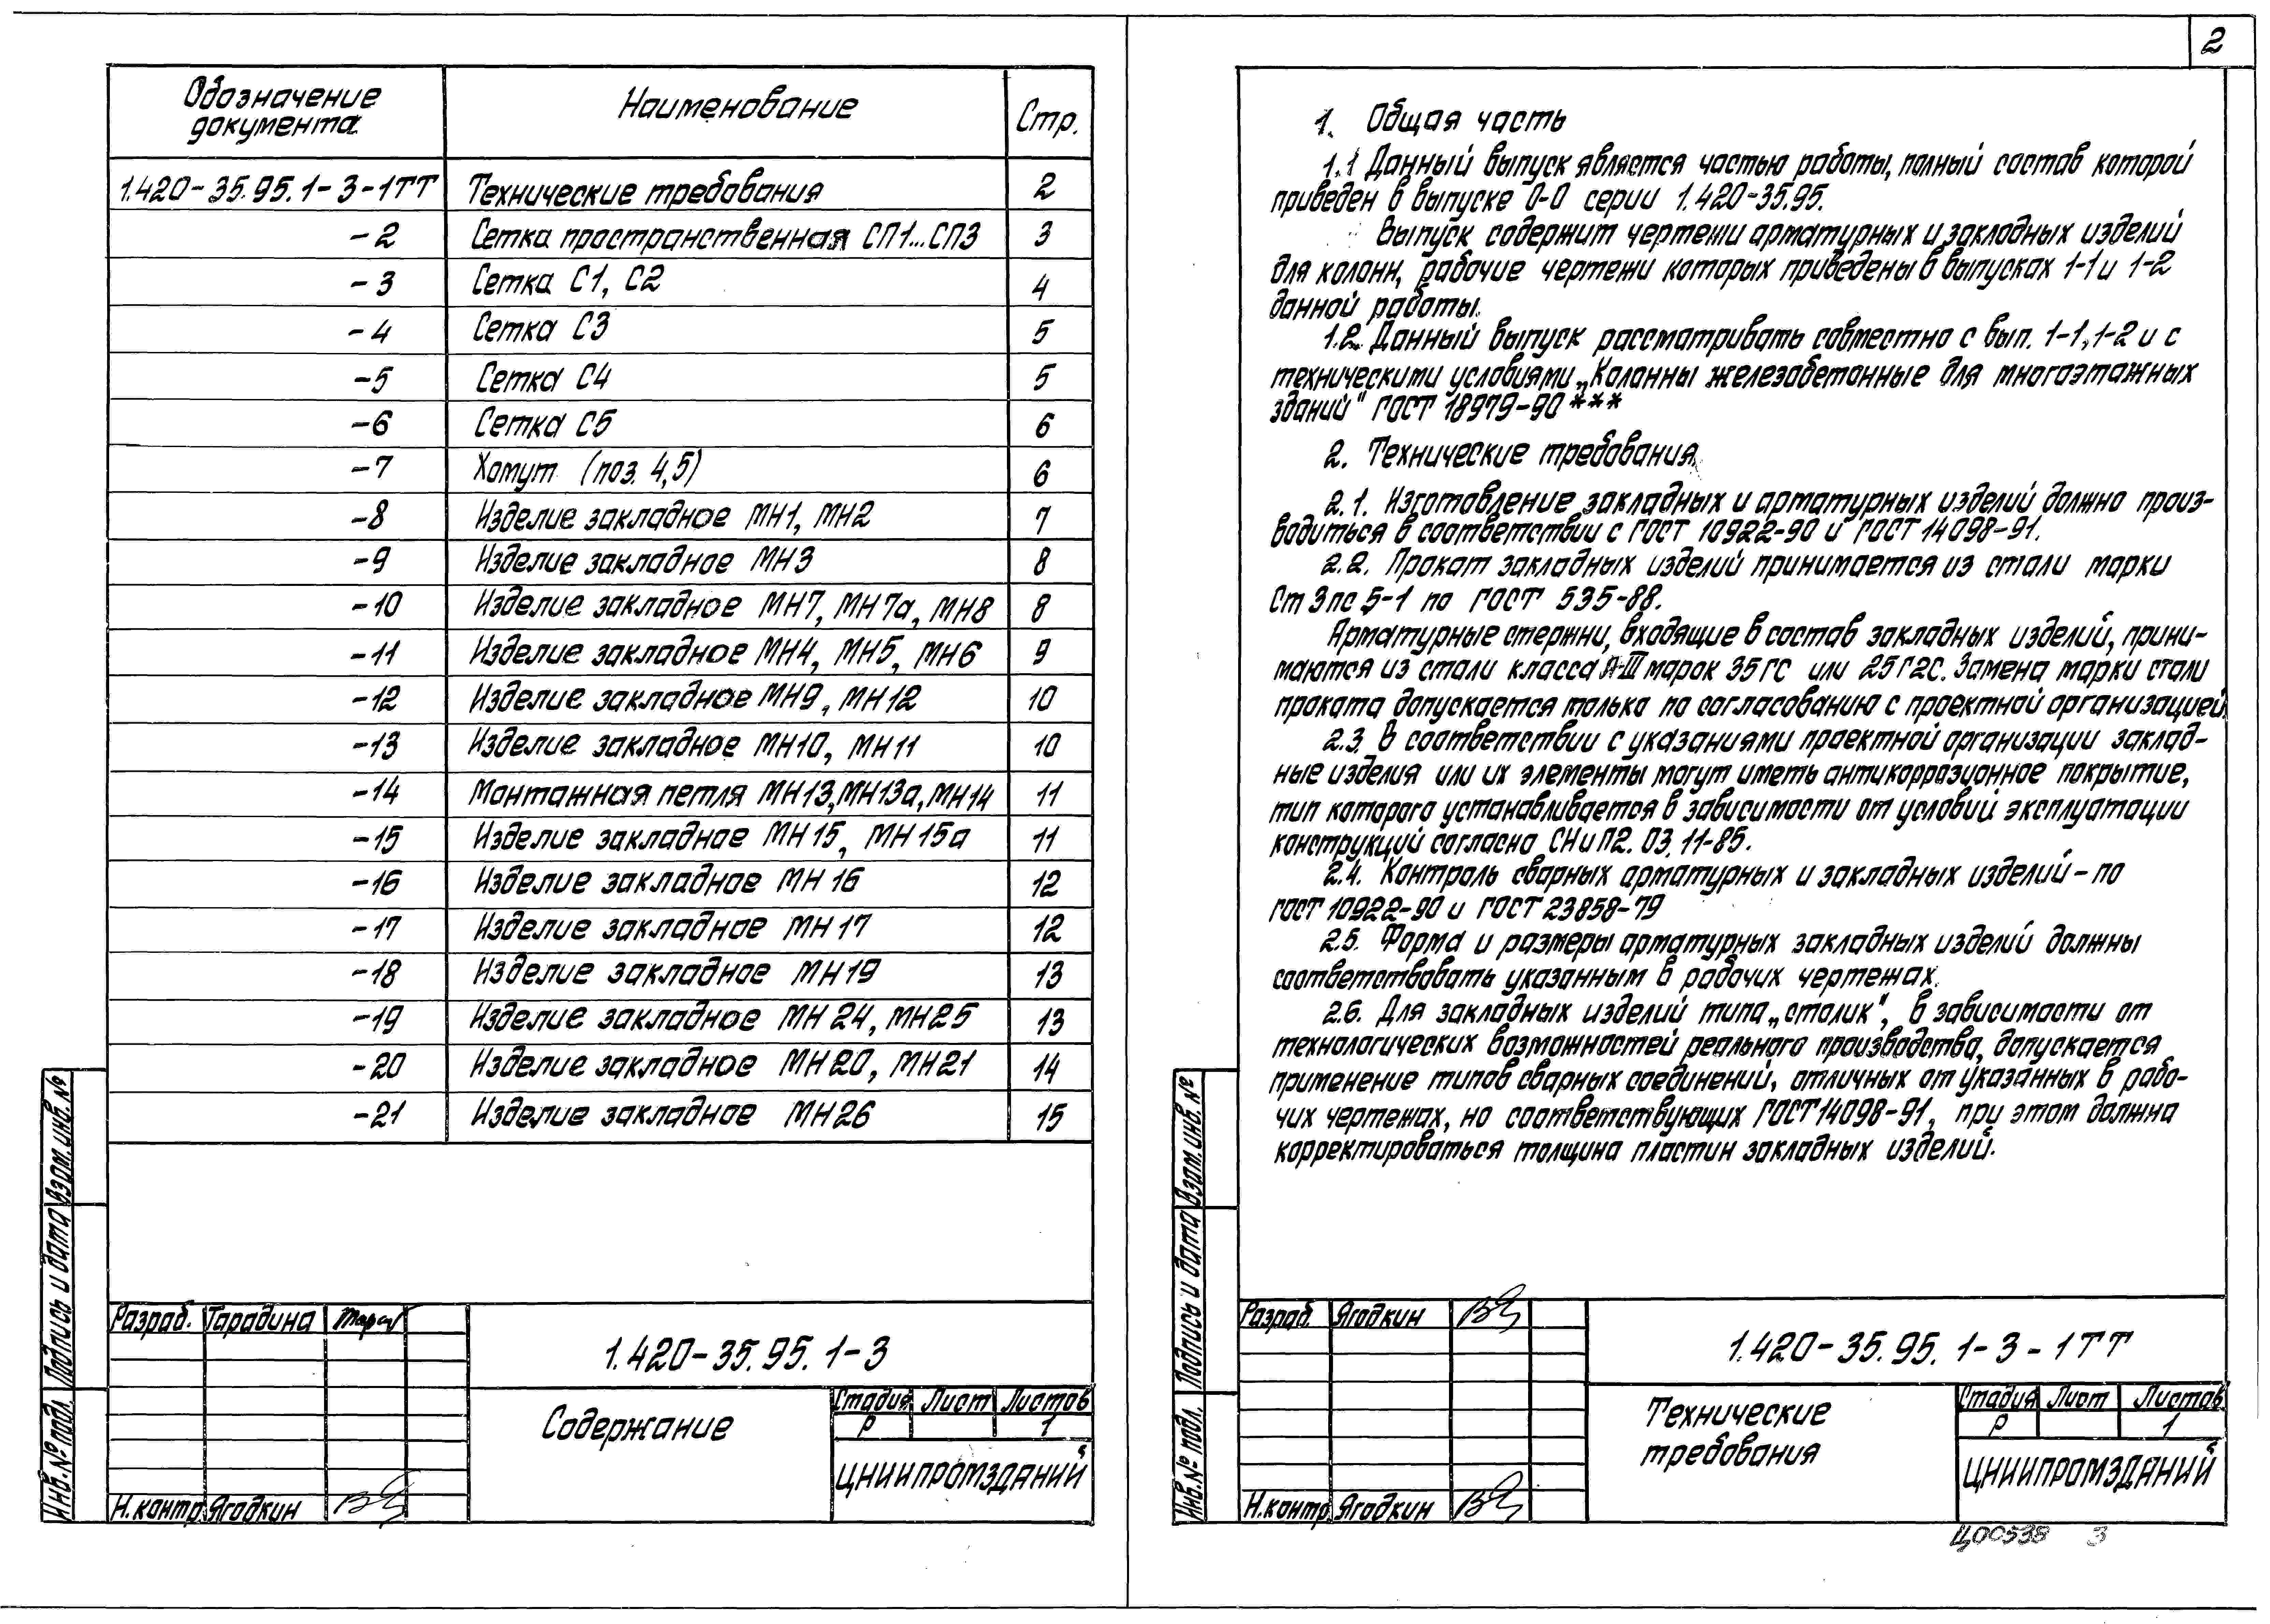 Обозначение документа Наименование Стр.
1.420-35.95.1-3-1ТТ Технические требования 2
-2 Сетка пространственная СП1...СП3 3
-3 Сетка С1, С2 4
-4 Сетка С3 5
-5 Сетка С4 5
-6 Сетка С5 6
-7 Хомут (поз. 4,5) 6
-8 Изделие закладное МН1, МН2 7
-9 Изделие закладное МН3 8
-10 Изделие закладное МН7, МН7а, МН8 8
-11 Изделие закладное МН4, МН5, МН6 9
-12 Изделие закладное МН9, МН12 10
-13 Изделие закладное МН10, МН11 10
-14 Монтажная петля МН13,МН13а,МН14 11
-15 Изделие закладное МН15, МН15а 11
-16 Изделие закладное МН16 12
-17 Изделие закладное МН17 12
-18 Изделие закладное МН19 13
-19 Изделие закладное МН24, МН25 13
-20 Изделие закладное МН20, МН21 14
-21 Изделие закладное МН26 15
Взам. инв. №
Подпись и дата
Инв. № подл.
Разраб. Тарадина
Н.контр. Ягодкин
1.420-35.95. 1-3
Содержание
Стадия Лист Листов
Р 1
ЦНИИПРОМЗДАНИЙ
2
1. Общая часть
1.1 Данный выпуск является частью работы, полный состав которой
приведен в выпуске 0-0 серии 1.420-35.95.
Выпуск содержит чертежи арматурных и закладных изделий
для колонн, рабочие чертежи которых приведены в выпусках 1-1 и 1-2
данной работы.
1.2. Данный выпуск рассматривать совместно с вып. 1-1, 1-2 и с
техническими условиями „Колонны железобетонные для многоэтажных
зданий" ГОСТ 18979-90***
2. Технические требования.
2.1. Изготовление закладных и арматурных изделий должно произ-
водиться в соответствии с ГОСТ 10922-90 и ГОСТ 14098-91.
2.2. Прокат закладных изделий принимается из стали марки
Ст 3пс 5-1 по ГОСТ 535-88.
Арматурные стержни, входящие в состав закладных изделий, прини-
маются из стали класса А-III марок 35ГС или 25Г2С. Замена марки стали
проката допускается только по согласованию с проектной организацией.
2.3. В соответствии с указаниями проектной организации заклад-
ные изделия или их элементы могут иметь антикоррозионное покрытие,
тип которого устанавливается в зависимости от условий эксплуатации
конструкций согласно СНиП2.03.11-85.
2.4. Контроль сварных арматурных и закладных изделий - по
ГОСТ 10922-90 и ГОСТ 23858-79
2.5. Форма и размеры арматурных закладных изделий должны
соответствовать указанным в рабочих чертежах.
2.6. Для закладных изделий типа „столик", в зависимости от
технологических возможностей реального производства, допускается
применение типов сварных соединений, отличных от указанных в рабо-
чих чертежах, но соответствующих ГОСТ14098-91, при этом должна
корректироваться толщина пластин закладных изделий.
Взам. инв. №
Подпись и дата
Инв. № подл.
Разраб. Ягодкин
Н.контр. Ягодкин
1.420-35.95. 1-3-1ТТ
Технические
требования
Стадия Лист Листов
Р 1
ЦНИИПРОМЗДАНИЙ
Ц00538 3